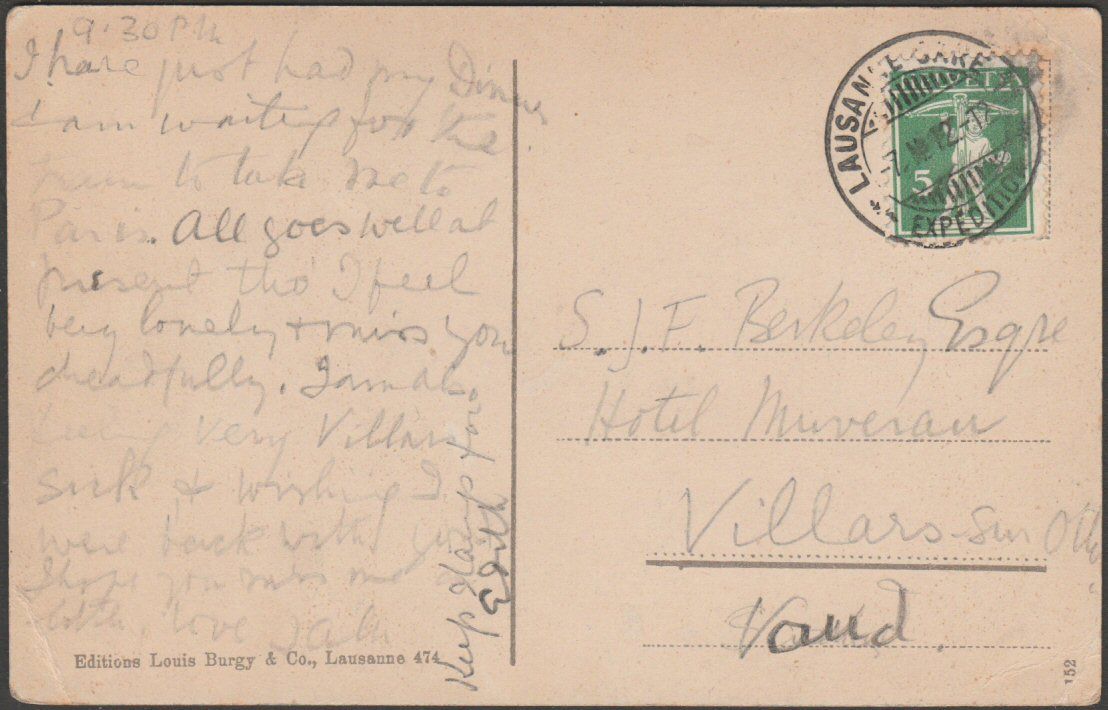 9.30 PM
I have just had my Dinner
I am waiting for the
train to take me to
Paris. All goes well at
present tho I feel
very lonely & miss you
dreadfully. I am also
feeling very Villars
sick & wishing I
were back with you
I hope you miss me a
little, love
Keep stamp for
Edith
Editions Louis Burgy & Co., Lausanne 474
LAUSANNE GARE
12-12
EXPEDITION
HELVETIA
5
S. J. F. Berkeley Esqre
Hotel Muveran
Villars-sur Ollon
Vaud
152